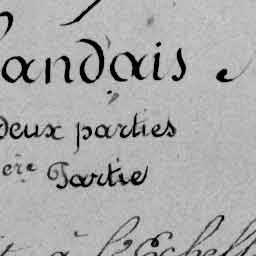 landais
deux parties
ère Partie
à l'Echell